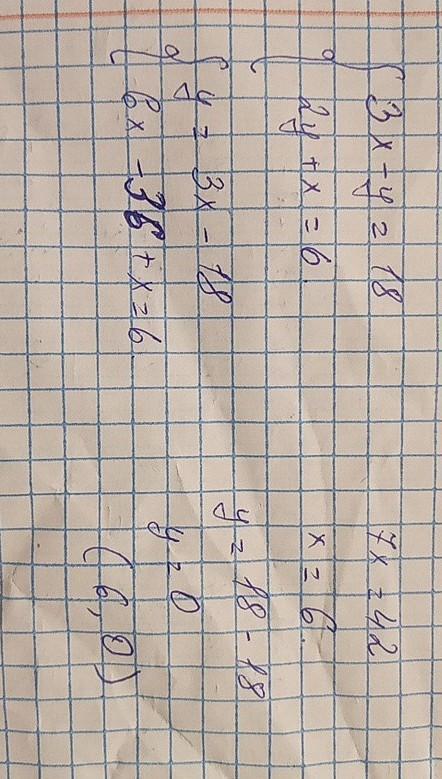 3x - y = 18
2y + x = 6
y = 3x - 18
6x - 36 + x = 6
7x = 42
x = 6
y = 18 - 18
y = 0
(6, 0)